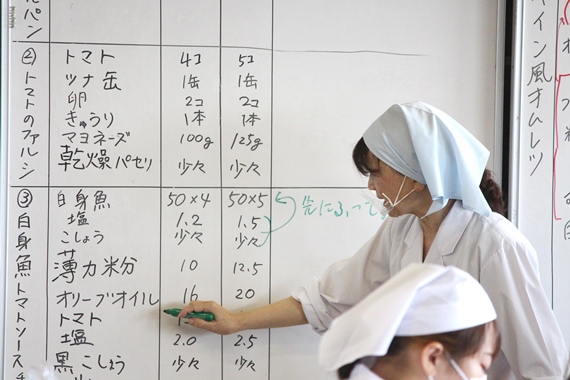 パン
② トマト 4コ 5コ
トマトのファルシ
ツナ缶 1缶 1缶
卵 2コ 2コ
きゅうり 1本 1本
マヨネーズ 100g 125g
乾燥パセリ 少々 少々
③ 白身魚 50×4 50×5
白身魚トマトソース
塩 1.2 1.5
こしょう 少々 少々
先にふって
薄力粉 10 12.5
オリーブオイル 16 20
トマト
塩 2.0 2.5
黒こしょう 少々 少々
イン風オムレツ